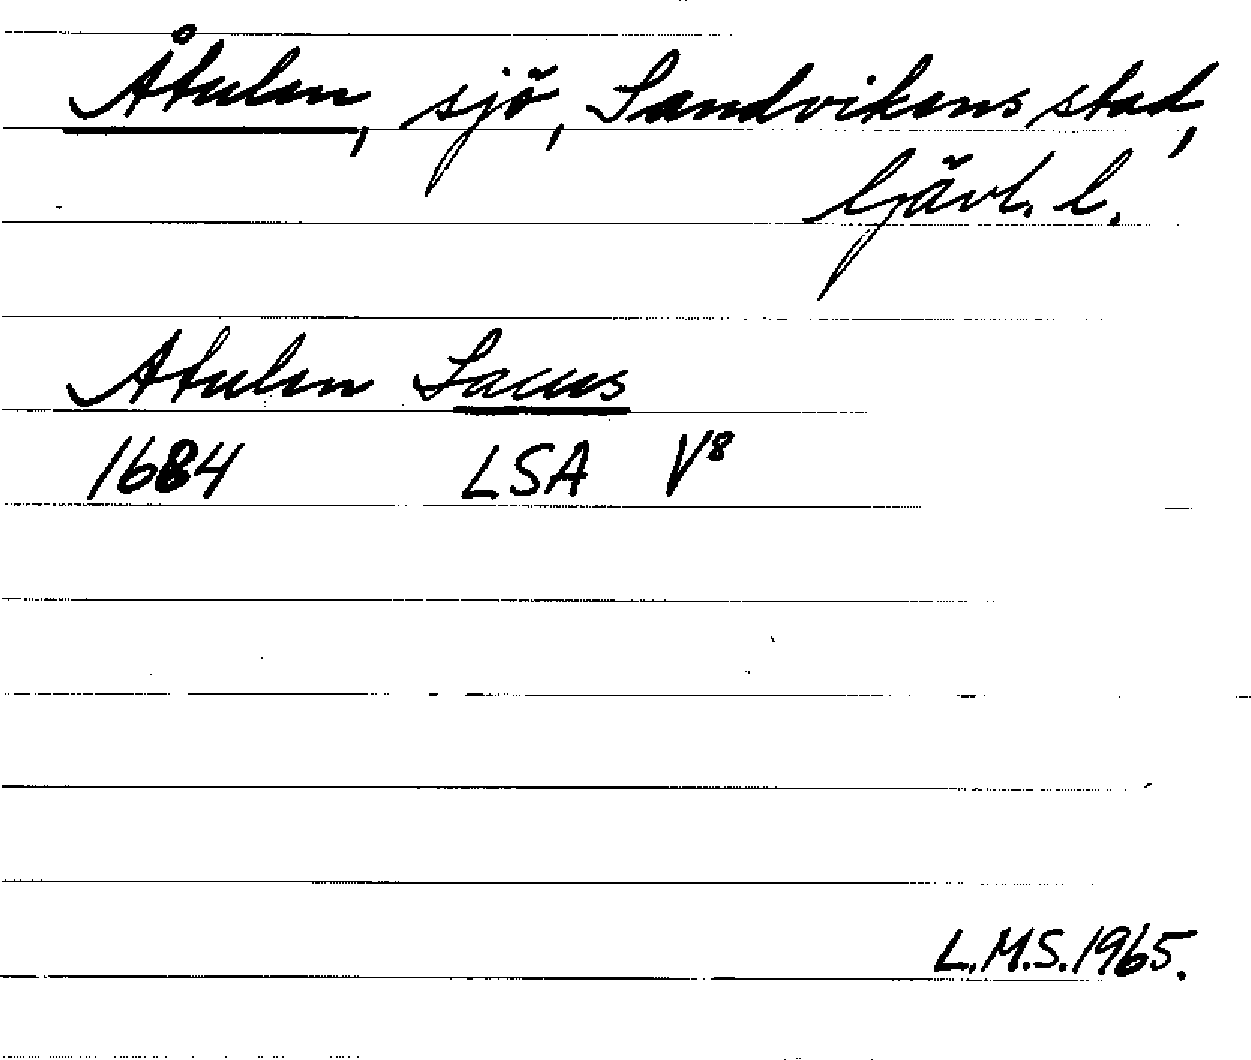 Åtulen, sjö, Sandvikens stad,
Gävl. l.
Atulen Lacus
1684 LSA V8
L.M.S. 1965.